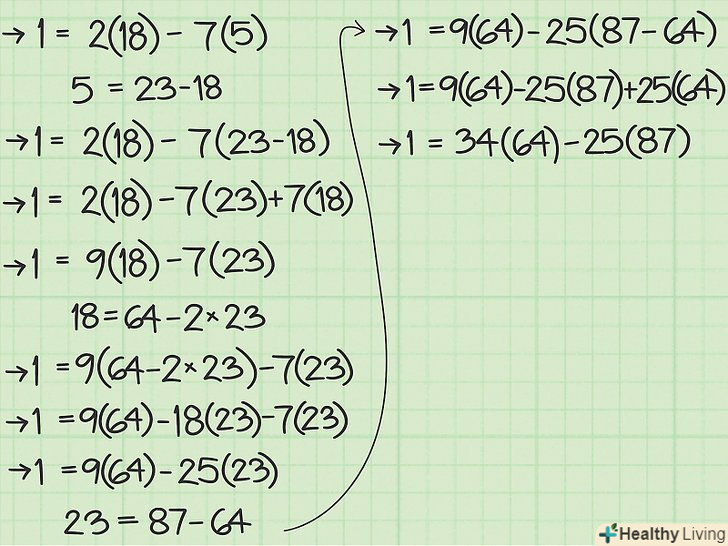 → 1 = 2(18) - 7(5)
5 = 23-18
→ 1 = 2(18) - 7(23-18)
→ 1 = 2(18) - 7(23)+7(18)
→ 1 = 9(18) - 7(23)
18 = 64 - 2 × 23
→ 1 = 9(64-2 × 23) - 7(23)
→ 1 = 9(64) - 18(23) - 7(23)
→ 1 = 9(64) - 25(23)
23 = 87 - 64
→ 1 = 9(64) - 25(87-64)
→ 1 = 9(64) - 25(87)+25(64)
→ 1 = 34(64) - 25(87)
Healthy Living